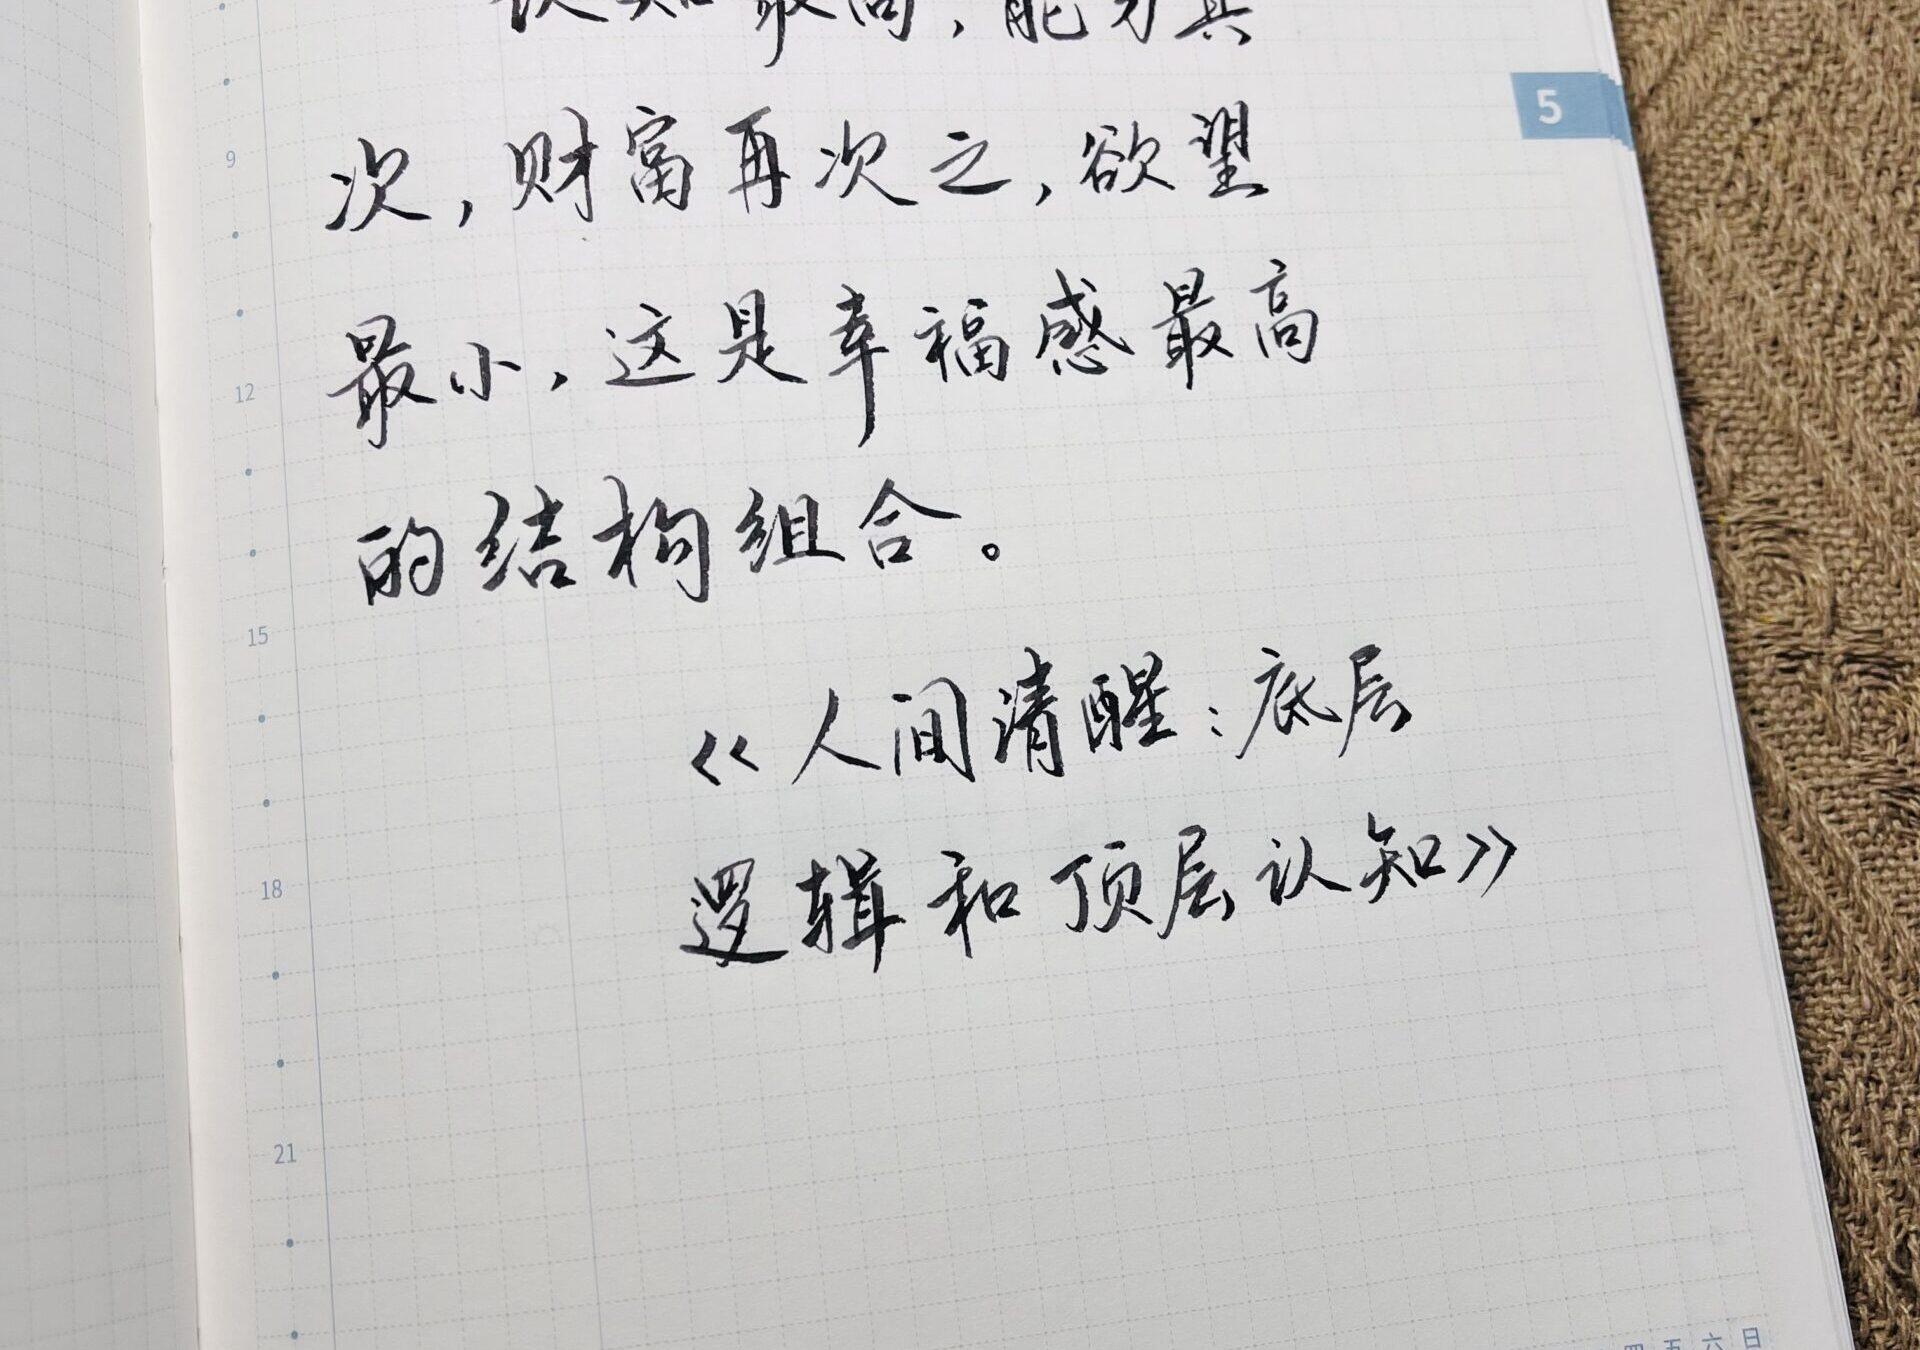 认知最高，能力其
5
次，财富再次之，欲望
9
最小，这是幸福感最高
12
的结构组合。
15
《人间清醒：底层
逻辑和顶层认知》
18
21
四 五 六 日